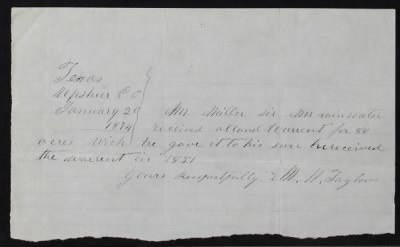 Texas
Upshur Co
January 20 Mr Miller Sir Mr rainwater
1874 received a land Warrent for 80
acres wich he gave it to his son he received
the warrent in 1851
Yours Respectfully W. H. Taylor